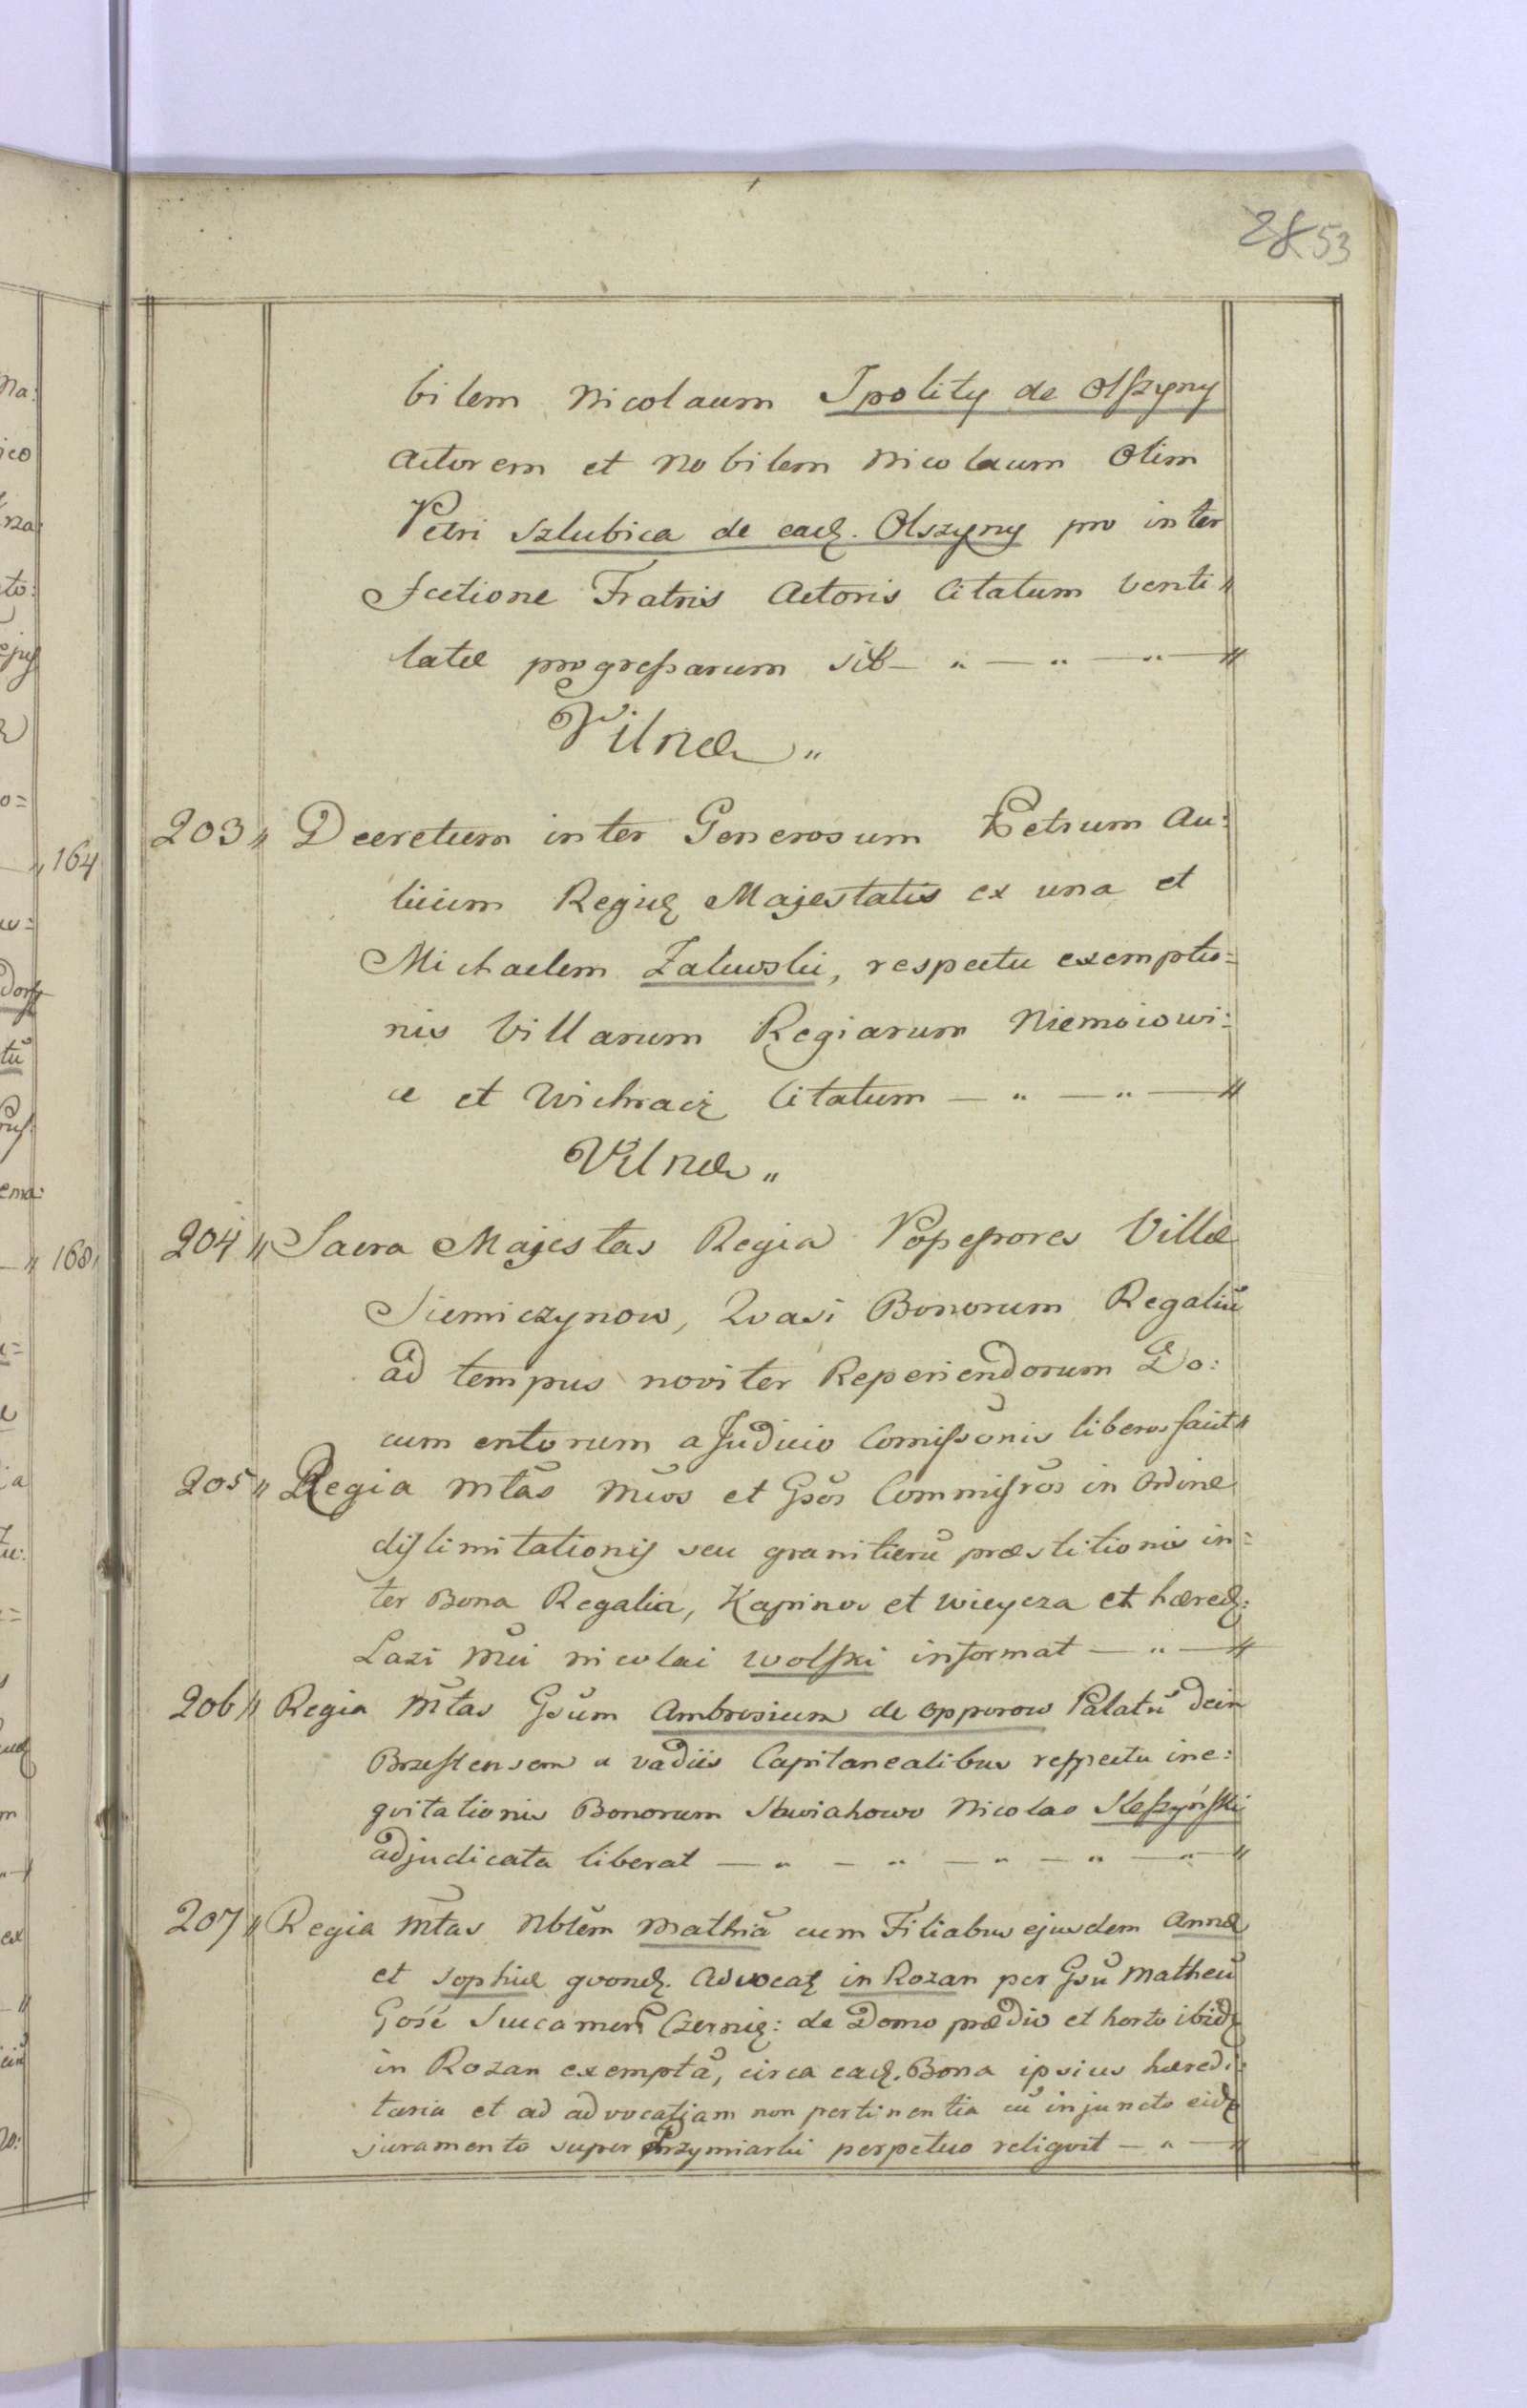 28 53
bilem Nicolaum Ipolity de Olszyny
Actorem et Nobilem Nicolaum Olim
Petri Szlubica de ead. Olszyny pro inter
fectione Fratris Actoris Citatum venti〃
latæ progressarum sit — 〃 — 〃 — 〃 — 〃
Vilnæ 〃
203 〃 Decretum inter Generosum Petrum Au:
licum Regiæ Majestatis ex una et
Michaelem Zalewski, respectu exemptio=
nis Villarum Regiarum Niemoiowi:
ce et Wichracz Citatum — 〃 — 〃 — 〃
Vilnæ 〃
204 〃 Sacra Majestas Regia Possessores Villæ
Siemiczynow, Qvasi Bonorum Regaliũ
ad tempus noviter Reperiendorum Do:
cumentorum a Judicio Comissõnis liberos facit 〃
205 〃 Regia Mtãs Mũos et Gsõs Commissrõs in Ordine
dislimitationis seu granitierũ præstitionis in=
ter Bona Regalia, Kapinos et Wieycza et hæred:
Lazi Mũi Nicolai Wolski informat — 〃 — 〃
206 〃 Regia Mt̃as Gsũm Ambrosium de Opporow Palatũ dein
Brzestensem a vadiis Capitanealibus respectu ine:
qvitationis Bonorum Stwiahowo Nicolao Sleszyński
adjudicata liberat — 〃 — 〃 — 〃 — 〃 — 〃 — 〃
207 〃 Regia Mt̃as Nblẽm Mathiã cum Filiabus ejusdem Annæ
et Sophiæ qvond. Advocat in Rozan per Gsũ Matheũ
Gość Succamerr̃ Czernię: de Domo prædio et horto ibid
in Rozan exemptã, circa ead. Bona ipsius hæredi:
taria et ad advocatiam non pertinentia cũ injuncto eid
juramento super Przymiarki perpetuo reliqvit — 〃 — 〃
164
168